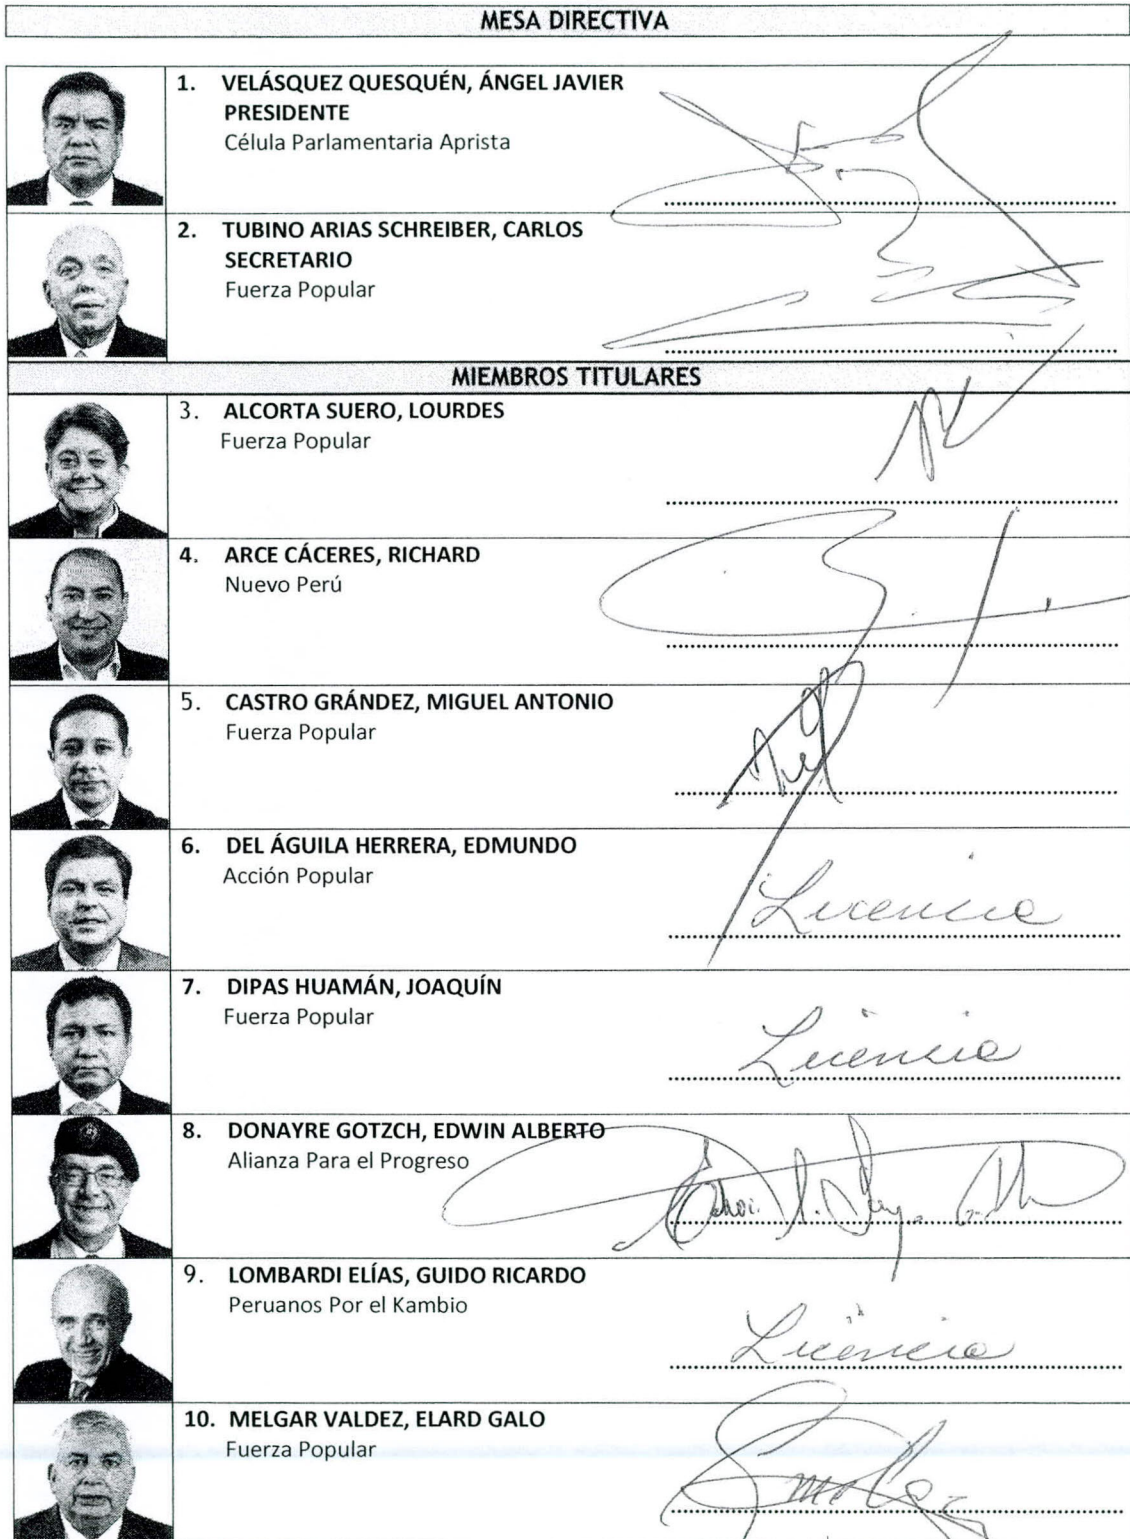 MESA DIRECTIVA
1. VELÁSQUEZ QUESQUÉN, ÁNGEL JAVIER
PRESIDENTE
Célula Parlamentaria Aprista
2. TUBINO ARIAS SCHREIBER, CARLOS
SECRETARIO
Fuerza Popular
MIEMBROS TITULARES
3. ALCORTA SUERO, LOURDES
Fuerza Popular
4. ARCE CÁCERES, RICHARD
Nuevo Perú
5. CASTRO GRÁNDEZ, MIGUEL ANTONIO
Fuerza Popular
6. DEL ÁGUILA HERRERA, EDMUNDO
Acción Popular
Licencia
7. DIPAS HUAMÁN, JOAQUÍN
Fuerza Popular
Licencia
8. DONAYRE GOTZCH, EDWIN ALBERTO
Alianza Para el Progreso
9. LOMBARDI ELÍAS, GUIDO RICARDO
Peruanos Por el Kambio
Licencia
10. MELGAR VALDEZ, ELARD GALO
Fuerza Popular